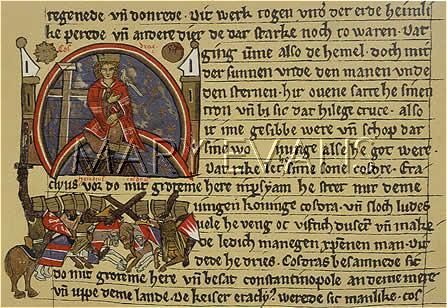 regenede vn̄ donrede. Dit werk togen vnd der erde heimli
ke perede vn̄ andere dier de dar starke noch to waren. Dat
Cos drae
ging vmme also de hemel. doch mit
der sunnen vnde den manen vnde
den sternen. hir ouene satte he sinen
tron vn̄ bi sic dat hilege cruce. also
it ime gesibbe were vn̄ schop dat
sine wo nunge als he got were.
Dat rike let sime sone cosdre. Era
clius vor do mit groteme here in psyam he stret mit deme
ungen koninge cosdra. vn̄ sloch ludes
vele he veng oc viftich dusent vn̄ makede
de ledich manegen man. Dit
dede he dries. Cosdras besamnede sic
do mit groteme here vn̄ besat constantinopole an deme mere
vn̄ vppe deme lande. De keiser eracl werede sic manlike cos
MARY EVANS